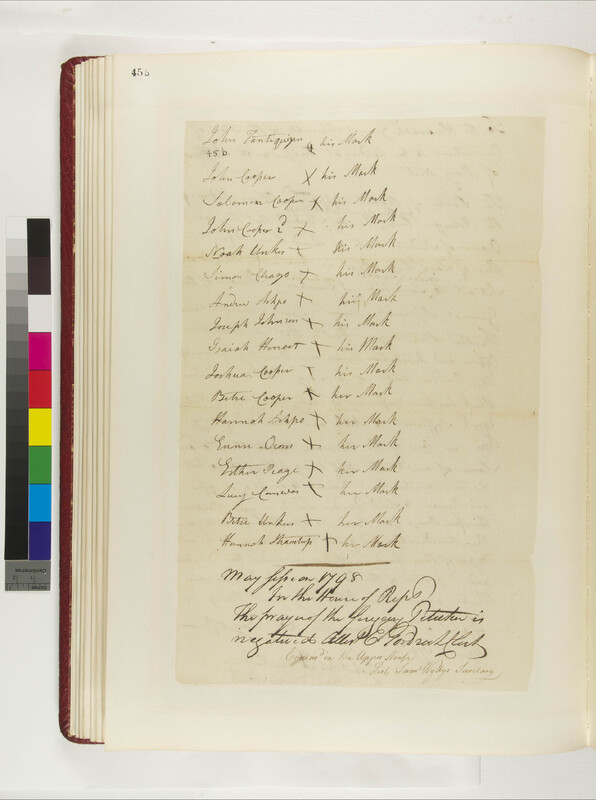 456
John his Mark
45b
John Cooper X his Mark
Solomon Cooper X his Mark
John Cooper 2 X his Mark
Noah Unkes X his Mark
Simon X his Mark
Andrew Ashpo X his Mark
Joseph Johnson X his Mark
Isaiah X his Mark
Joshua Cooper X his Mark
Betse Cooper X her Mark
Hannah Ashpo X her Mark
X her Mark
Esther X her Mark
Lucy X her Mark
Betse Unkus X her Mark
Hannah X her Mark
May Session 1798
In the House of Reps
The prayer of the Petition is
negatived Attest E Goodrich Clerk
in the Upper House
Test Saml Wyllys Secretary
Centimetres